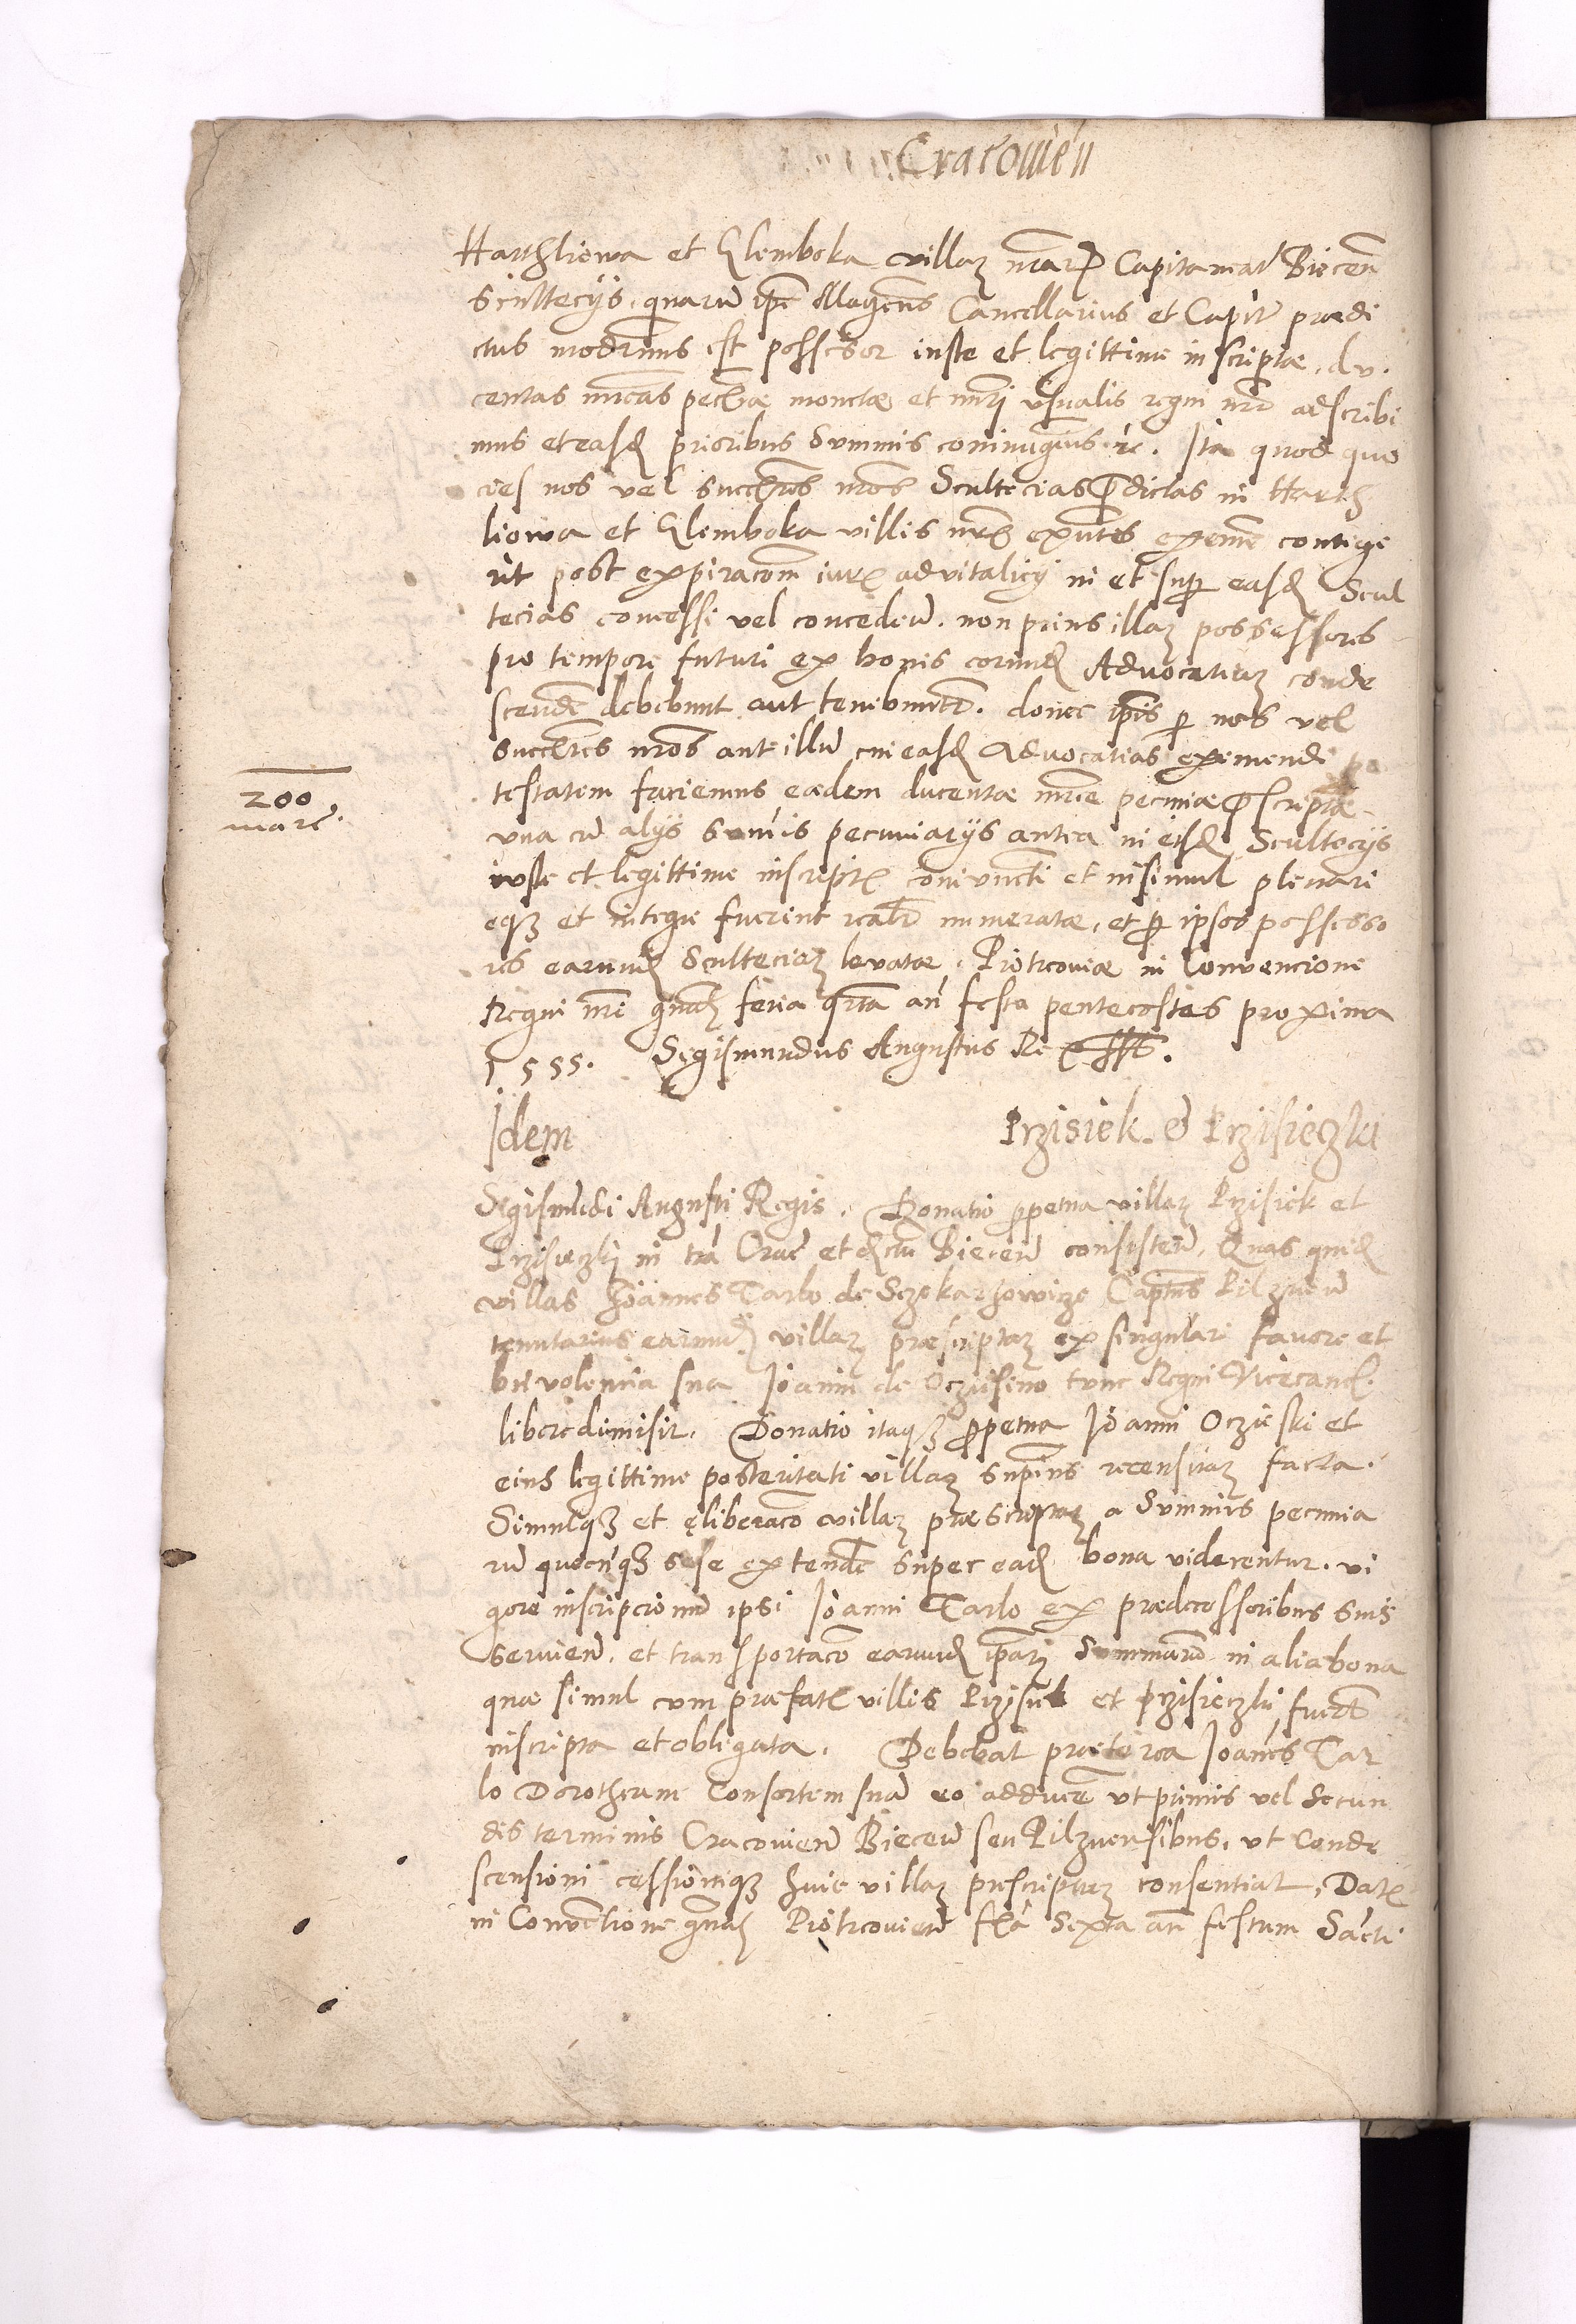 Cracouien
Harthliowa et Glemboka villar nrar Capitaneat Biecen
Scultecys, quaru ipe Magcus Cancellarius et Capit prædi
ctus modrnus est possessor iuste et legittime inscriptæ, du
centas mrcas pecuæ monetæ et nuri usualis regni nri adscribi
mus et easd prioribus Summis coniungius etc. Ita quod quo
cies nos vel succres nros Scultecias pdictas in Harth
liowa et Glemboka villis nris exntes eximere contige
rit post expiracom iuris advitalicy in et sup easd Scul
tecias concessi vel concedeñ. non prius illar possessores
pro tempore futuri ex bonis eorund Advocatiar conde
scendere debebunt aut tenebuntr. donec ipsis p nos vel
succres nros aut illu cui easd Advocatias eximendi po
testatem faciemus eædem ducentæ mrce pecuniæ pscriptæ
una cu alys sumis pecuniarys antea in eisd Scultecys
iuste et legittime inscriptis coniuncti et insimul plenari
eqz et integre fuerint realr numeratæ, et p ipsos possesso
res earund Sculteciar levatæ. Piotrcoviæ in Convencione
Regni nri gnali feria qrta an festa pentecostes proxima
1555. Sigismundus Augustus Rex sst.
200
marc.
Idem Przisiek. & Przisieczki
Sigismudi Augusti Regis. Donatio ppetua villar Przisiek et
Przisieczki in tra Crac et dictu Biecen consisten. Quas quid
villas Joannes Tarlo de Sczekarzowicze Captns Pilznen
tenutarius earund villar præscriptar ex singulari favore et
benevolencia sua Joanni de Oczissino tunc Regni Vicecanc.
libere dimisit. Donatio itaqz ppetua Joanni Oczieski et
eius legittime posteritati villar supius recensitar facta.
Simulqz et eliberaco villar præscriptar a Summis pecunia
ru quocuqz sese extendere super ead bona viderentur. vi
gore inscripcionu ipsi Joanni Tarlo ex prædecessoribus suis
servien. et transportaco earund ipsar Summaru in alia bona
quæ simul cum præfatis villis Przisiek et Przisieczki fuert
inscripta et obligata. Debebat præterea Joanes Tar
lo Dorotheam Consortem sua eo adducere ut primis vel secun
dis terminis Cracovien Biecen seu Pilznensibus, ut Conde
scensioni cessioniqz huic villar prescriptar consentiat. Datis
in Conventione gnali Piotrcovien fria Sexta an festum Sacti